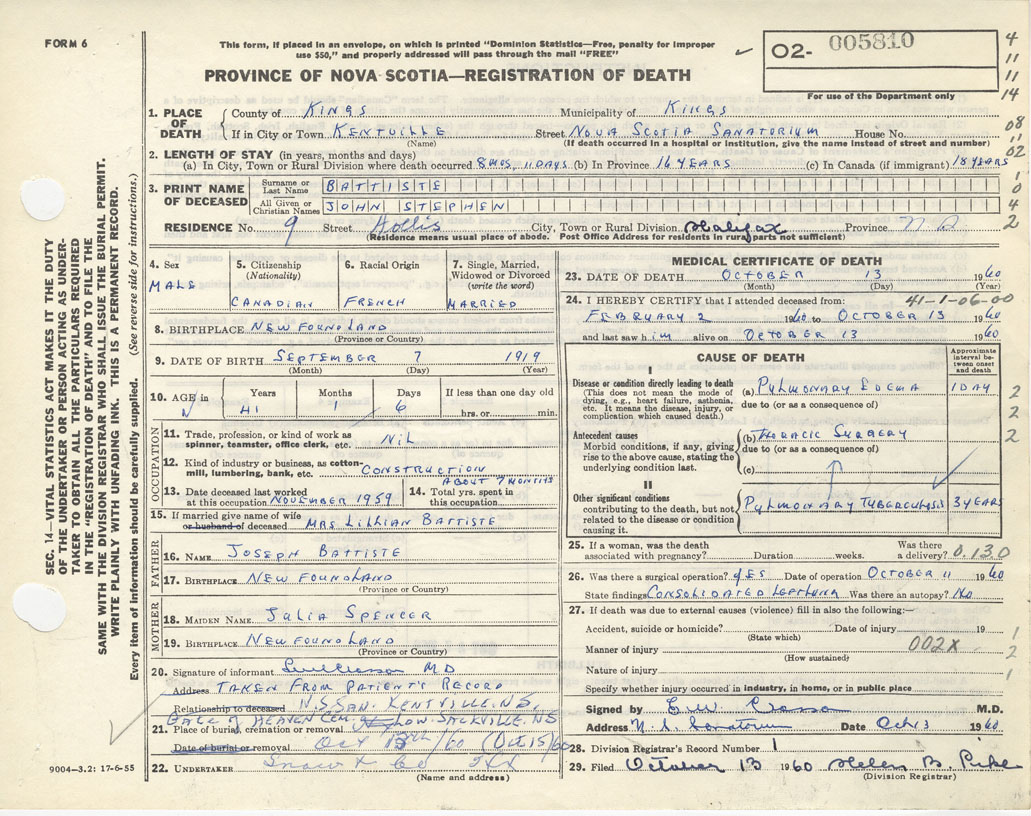 FORM 6
This form, if placed in an envelope, on which is printed "Dominion Statistics—Free, penalty for improper
use $50," and properly addressed will pass through the mail "FREE"
PROVINCE OF NOVA SCOTIA—REGISTRATION OF DEATH
02- 005810
For use of the Department only
4
11
11
14
08
11
02
1
0
4
2
1. PLACE OF DEATH
County of KINGS Municipality of KINGS
If in City or Town KENTVILLE Street NOVA SCOTIA SANATORIUM House No.
(Name) (If death occurred in a hospital or institution, give the name instead of street and number)
2. LENGTH OF STAY (in years, months and days)
(a) In City, Town or Rural Division where death occurred 8 MOS. 11 DAYS (b) In Province 16 YEARS (c) In Canada (if immigrant) 18 YEARS
3. PRINT NAME OF DECEASED
Surname or Last Name BATTISTE
All Given or Christian Names JOHN STEPHEN
RESIDENCE No. 9 Street Hollis City, Town or Rural Division Halifax Province N S
(Residence means usual place of abode. Post Office Address for residents in rural parts not sufficient)
4. Sex
MALE
5. Citizenship
(Nationality)
CANADIAN
6. Racial Origin
FRENCH
7. Single, Married,
Widowed or Divorced
(write the word)
MARRIED
8. BIRTHPLACE NEWFOUNDLAND
(Province or Country)
9. DATE OF BIRTH SEPTEMBER 7 1919
(Month) (Day) (Year)
10. AGE in
Years Months Days If less than one day old
41 1 6 hrs. or min.
OCCUPATION
11. Trade, profession, or kind of work as
spinner, teamster, office clerk, etc. NIL
12. Kind of industry or business, as cotton-
mill, lumbering, bank, etc. CONSTRUCTION
13. Date deceased last worked
at this occupation NOVEMBER 1959
14. Total yrs. spent in
this occupation ABOUT 7 MONTHS
15. If married give name of wife
or husband of deceased MRS LILLIAN BATTISTE
FATHER
16. NAME JOSEPH BATTISTE
17. BIRTHPLACE NEWFOUNDLAND
(Province or Country)
MOTHER
18. MAIDEN NAME JULIA SPENCER
19. BIRTHPLACE NEWFOUNDLAND
(Province or Country)
20. Signature of informant MD
Address TAKEN FROM PATIENT'S RECORD
Relationship to deceased N.S. SAN. KENTVILLE. N.S.
GATE OF HEAVEN CEM. LOW. SACKVILLE. NS
21. Place of burial, cremation or removal
Date of burial or removal Oct 13th/60 (Oct 15/60
22. UNDERTAKER Snow & Co
(Name and address)
9004—3.2: 17-6-55
SEC. 14—VITAL STATISTICS ACT MAKES IT THE DUTY
OF THE UNDERTAKER OR PERSON ACTING AS UNDER-
TAKER TO OBTAIN ALL THE PARTICULARS REQUIRED
IN THE "REGISTRATION OF DEATH" AND TO FILE THE
SAME WITH THE DIVISION REGISTRAR WHO SHALL ISSUE THE BURIAL PERMIT.
WRITE PLAINLY WITH UNFADING INK. THIS IS A PERMANENT RECORD.
Every item of information should be carefully supplied. (See reverse side for instructions.)
MEDICAL CERTIFICATE OF DEATH
23. DATE OF DEATH OCTOBER 13 1960
(Month) (Day) (Year)
24. I HEREBY CERTIFY that I attended deceased from: 41-1-06-00
FEBRUARY 2 1960 to OCTOBER 13 1960
and last saw him alive on OCTOBER 13 1960
CAUSE OF DEATH
Approximate
interval be-
tween onset
and death
I
Disease or condition directly leading to death
(This does not mean the mode of
dying, e.g., heart failure, asthenia,
etc. It means the disease, injury, or
complication which caused death.)
(a) PULMONARY EDEMA 1 DAY
due to (or as a consequence of)
Antecedent causes
Morbid conditions, if any, giving
rise to the above cause, stating the
underlying condition last.
(b) THORACIC SURGERY
due to (or as a consequence of)
(c)
II
Other significant conditions
contributing to the death, but not
related to the disease or condition
causing it.
PULMONARY TUBERCULOSIS 3 YEARS
2
2
2
25. If a woman, was the death
associated with pregnancy? Duration weeks. Was there
a delivery? 0.130
26. Was there a surgical operation? YES Date of operation OCTOBER 11 1960
State findings CONSOLIDATED LEFT LUNG Was there an autopsy? NO
27. If death was due to external causes (violence) fill in also the following:—
Accident, suicide or homicide? Date of injury 19
(State which)
Manner of injury 002X
(How sustained)
Nature of injury
1
2
1
Specify whether injury occurred in industry, in home, or in public place
Signed by M.D.
Address N. S. Sanatorium Date Oct 13 1960
28. Division Registrar's Record Number 1
29. Filed October 13 1960 Helen B. Pike
(Division Registrar)